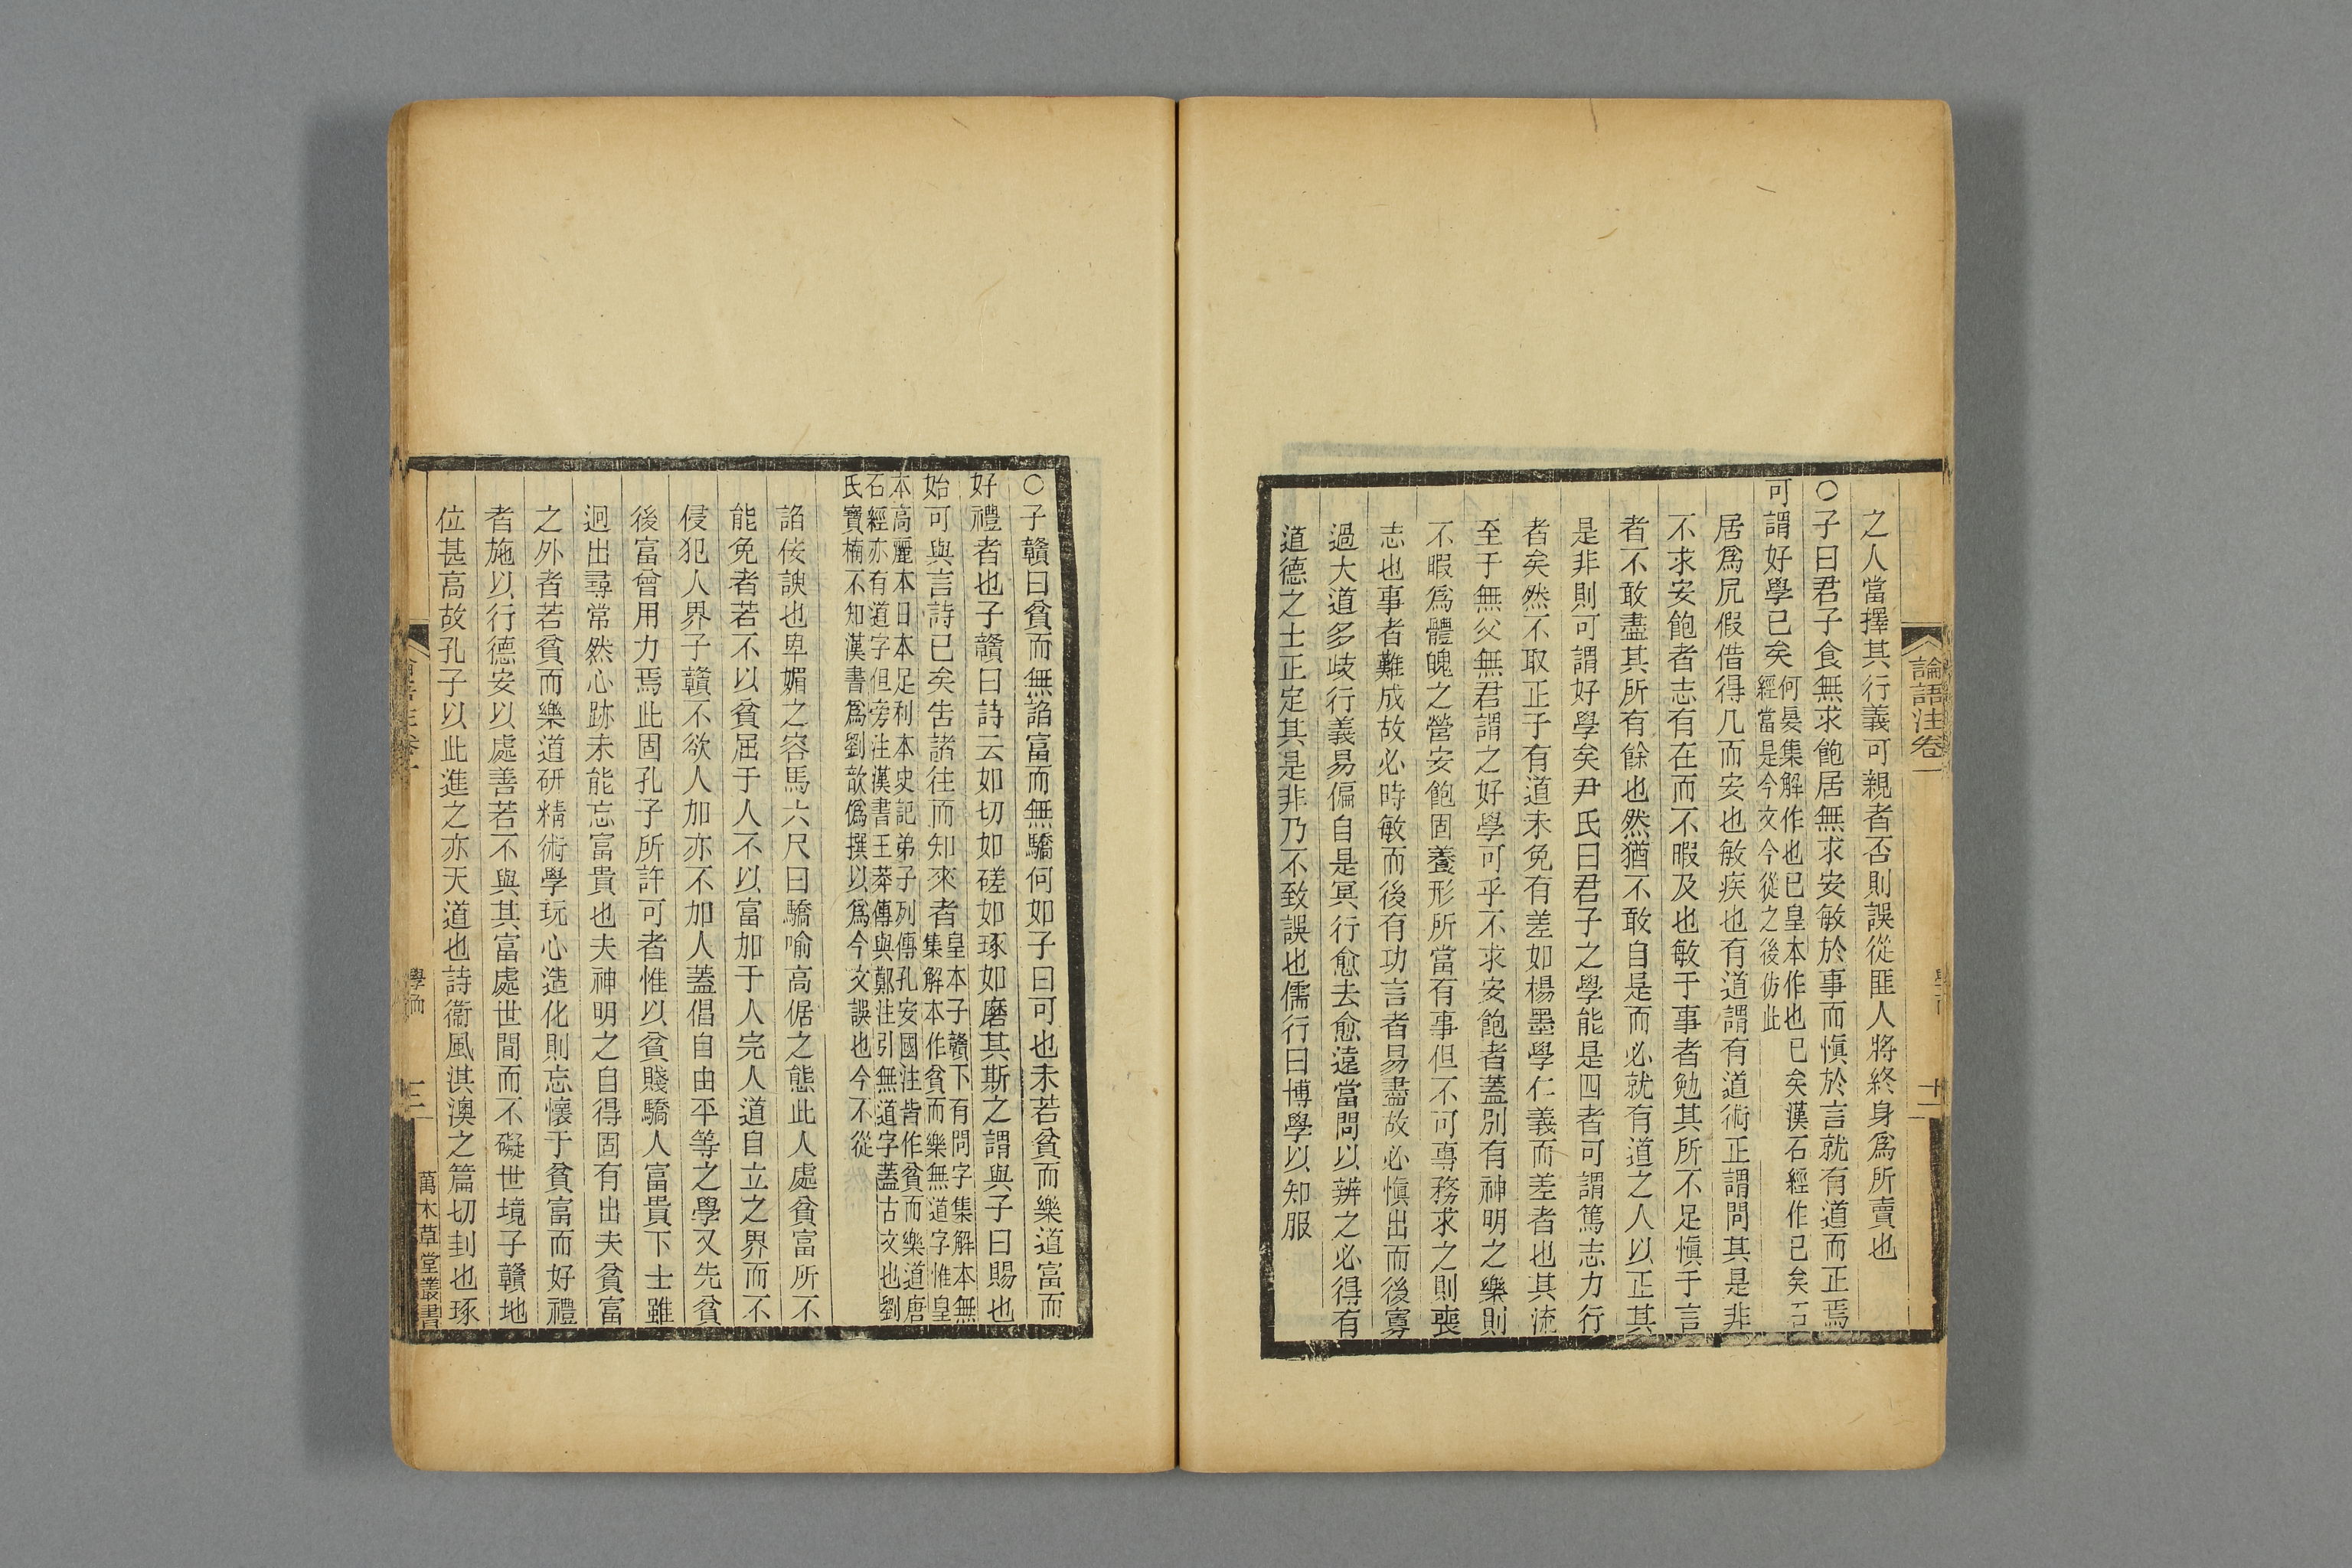 論語注卷一
之人當擇其行義可親者否則誤從匪人將終身爲所賣也
○子曰君子食無求飽居無求安敏於事而愼於言就有道而正焉
可謂好學已矣
何晏集解作也已皇本作也已矣漢石經作已矣石
經當是今文今從之後仿此
居爲凥假借得几而安也敏疾也有道謂有道術正謂問其是非
不求安飽者志有在而不暇及也敏于事者勉其所不足愼于言
者不敢盡其所有餘也然猶不敢自是而必就有道之人以正其
是非則可謂好學矣尹氏曰君子之學能是四者可謂篤志力行
者矣然不取正于有道未免有差如楊墨學仁義而差者也其流
至于無父無君謂之好學可乎不求安飽者蓋別有神明之樂則
不暇爲體魄之營安飽固養形所當有事但不可專務求之則喪
志也事者難成故必時敏而後有功言者易盡故必愼出而後寡
過大道多歧行義易偏自是冥行愈去愈遠當問以辨之必得有
道德之士正定其是非乃不致誤也儒行曰博學以知服
○子贛曰貧而無諂富而無驕何如子曰可也未若貧而樂道富而
好禮者也子贛曰詩云如切如磋如琢如磨其斯之謂與子曰賜也
始可與言詩已矣告諸往而知來者
皇本子贛下有問字集解本無
集解本作貧而樂無道字惟皇
本高麗本日本足利本史記弟子列傳孔安國注皆作貧而樂道唐
石經亦有道字但旁注漢書王莽傳與鄭注引無道字蓋古文也劉
氏寶楠不知漢書爲劉歆僞撰以爲今文誤也今不從
諂佞諛也卑媚之容馬六尺曰驕喻高倨之態此人處貧富所不
能免者若不以貧屈于人不以富加于人完人道自立之界而不
侵犯人界子贛不欲人加亦不加人蓋倡自由平等之學又先貧
後富曾用力焉此固孔子所許可者惟以貧賤驕人富貴下士雖
迥出尋常然心跡未能忘富貴也夫神明之自得固有出夫貧富
之外者若貧而樂道研精術學玩心造化則忘懷于貧富而好禮
者施以行德安以處善若不與其富處世間而不礙世境子贛地
位甚高故孔子以此進之亦天道也詩衞風淇澳之篇切刲也琢
學而
萬木草堂叢書